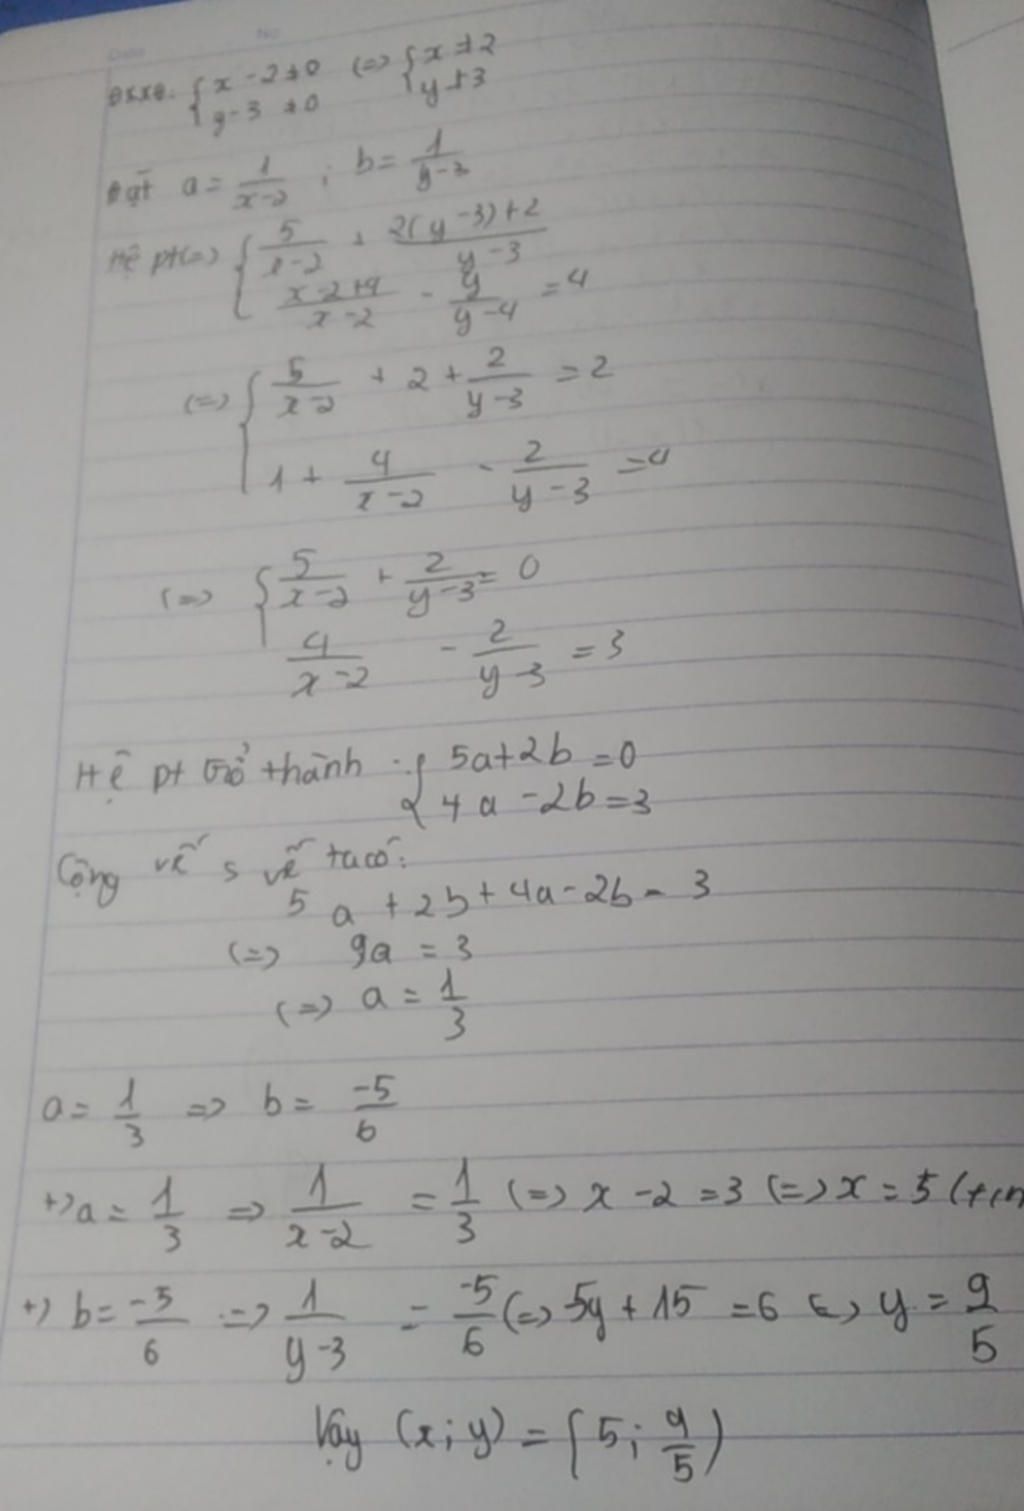 Date No
ĐKXĐ: { x - 2 ≠ 0 (=) { x ≠ 2
y - 3 ≠ 0 y ≠ 3
Đặt a = 1/(x-2) ; b = 1/(y-3)
Hệ pt (=) { 5/(x-2) + (2(y-3)+2)/(y-3)
(x-2+4)/(x-2) - y/(y-4) = 4
(=) { 5/(x-2) + 2 + 2/(y-3) = 2
1 + 4/(x-2) - 2/(y-3) = 4
(=) { 5/(x-2) + 2/(y-3) = 0
4/(x-2) - 2/(y-3) = 3
Hệ pt trở thành : { 5a + 2b = 0
4a - 2b = 3
Cộng vế s vế ta có:
5a + 2b + 4a - 2b = 3
(=) 9a = 3
(=) a = 1/3
a = 1/3 => b = -5/6
+) a = 1/3 => 1/(x-2) = 1/3 (=) x - 2 = 3 (=) x = 5
+) b = -5/6 => 1/(y-3) = -5/6 (=) -5y + 15 = 6 (=) y = 9/5
Vậy (x ; y) = (5 ; 9/5)